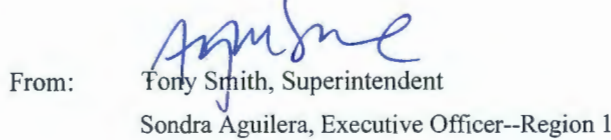 From: Tony Smith, Superintendent
Sondra Aguilera, Executive Officer--Region 1